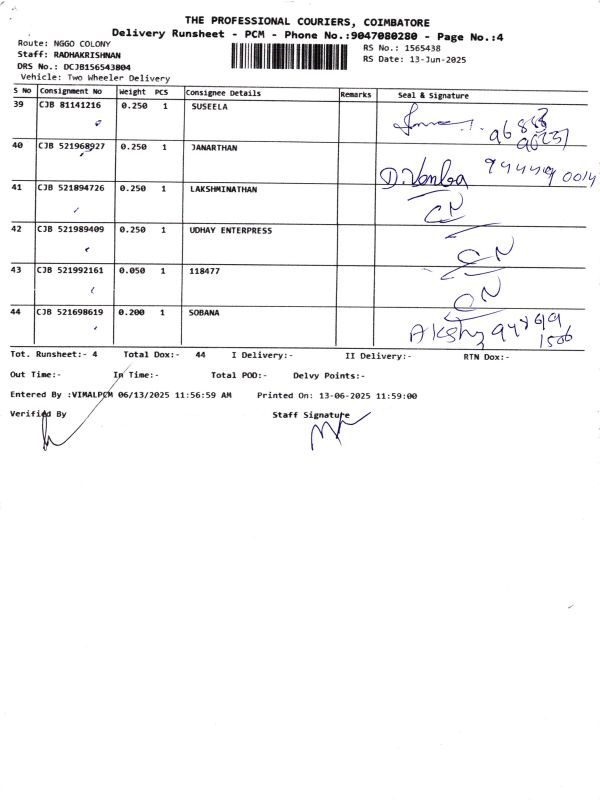 THE PROFESSIONAL COURIERS, COIMBATORE
Delivery Runsheet - PCM - Phone No.:9047080280 - Page No.:4
Route: NGGO COLONY
RS No.: 1565438
Staff: RADHAKRISHNAN
RS Date: 13-Jun-2025
DRS No.: DCJB156543804
Vehicle: Two Wheeler Delivery
S No Consignment No Weight PCS Consignee Details Remarks Seal & Signature
39 CJB 81141216 0.250 1 SUSEELA
40 CJB 521968927 0.250 1 JANARTHAN
41 CJB 521894726 0.250 1 LAKSHMINATHAN
CN
42 CJB 521989409 0.250 1 UDHAY ENTERPRESS
CN
43 CJB 521992161 0.050 1 118477
CN
44 CJB 521698619 0.200 1 SOBANA
Tot. Runsheet:- 4 Total Dox:- 44 I Delivery:- II Delivery:- RTN Dox:-
Out Time:- In Time:- Total POD:- Delvy Points:-
Entered By :VIMALPCM 06/13/2025 11:56:59 AM Printed On: 13-06-2025 11:59:00
Verified By Staff Signature